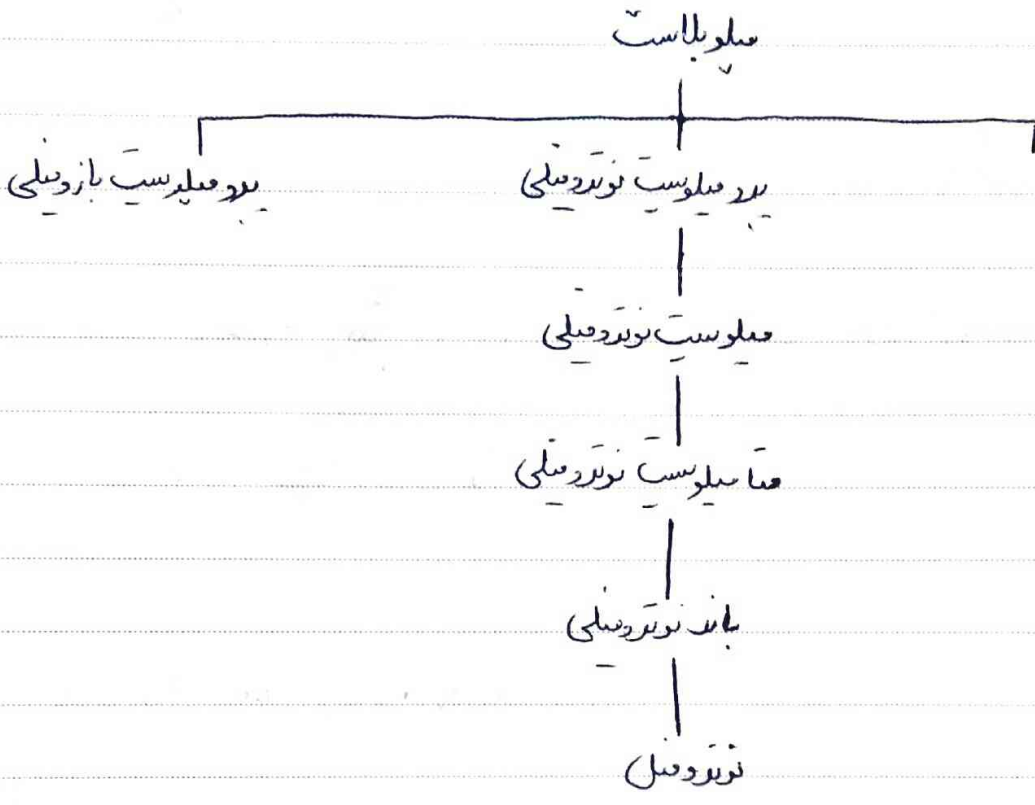 میلوبلاست
پرومیلوسیت نوتروفیلی پرومیلوسیت بازوفیلی
میلوسیت نوتروفیلی
متامیلوسیت نوتروفیلی
باند نوتروفیلی
نوتروفیل